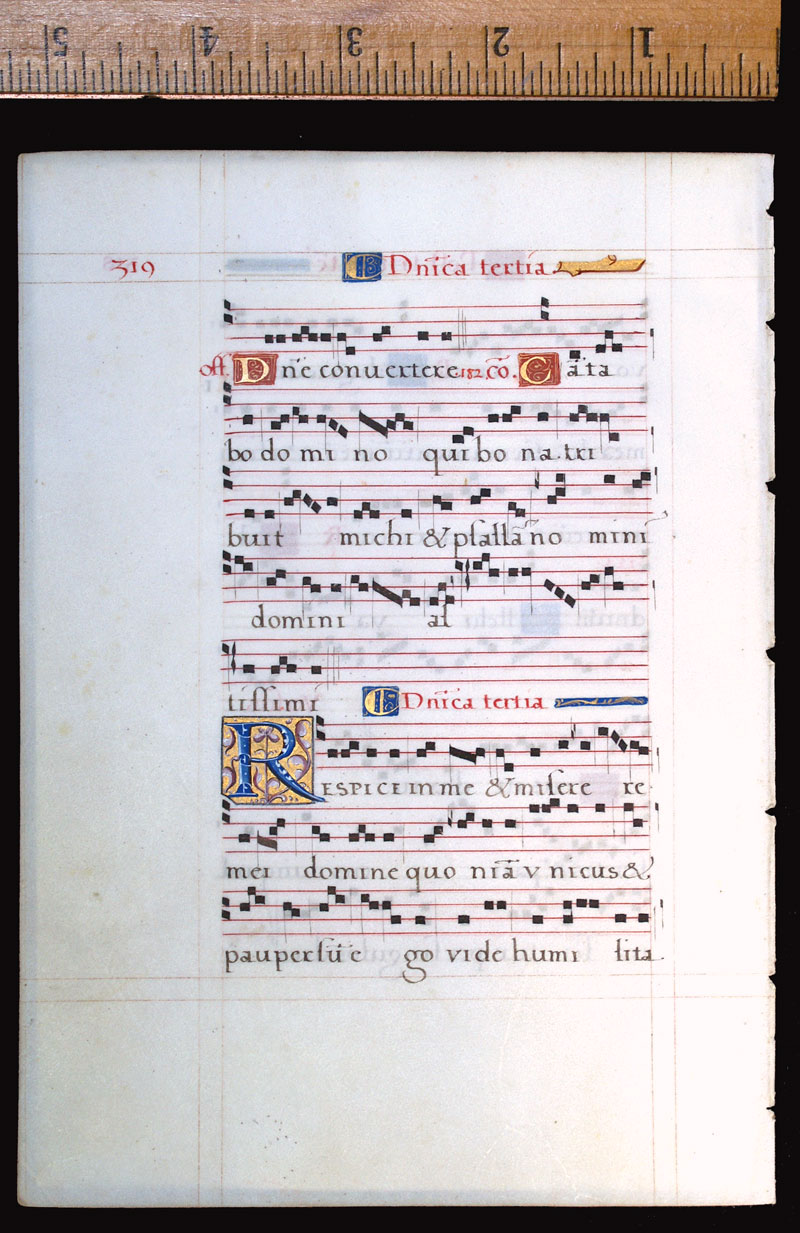 5 4 3 2 1
319 Dn̄ica tertia
off. Dn̄e conuertere 182. cō. Cāta
bo do mi no qui bo na tri
buit michi & pſallā no mini
domini al
tiſſimi Dn̄ica tertia
RESPICE in me & miſere re
mei domine quo niā v nicus &
pauper sū e go vide humi lita